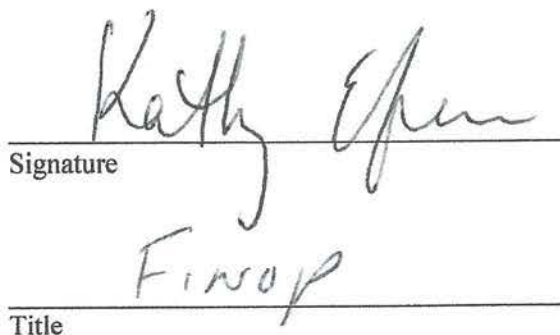 Kathy
Signature
FINOP
Title